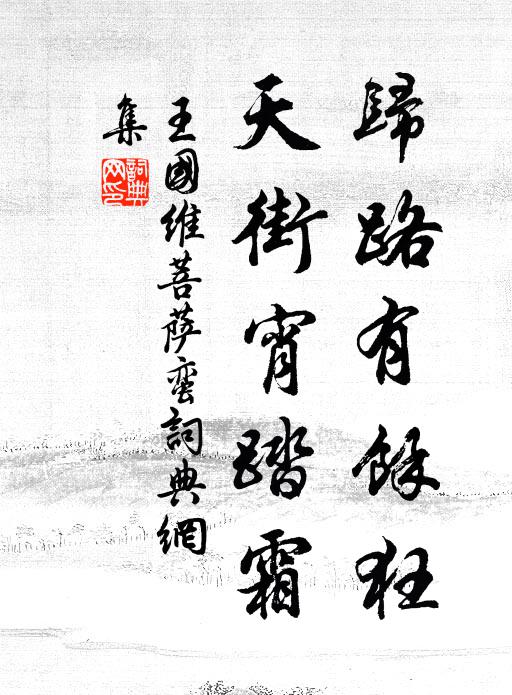 歸路有餘狂
天街宵踏霜
王國維菩薩蠻詞典網
集
詞典
网印